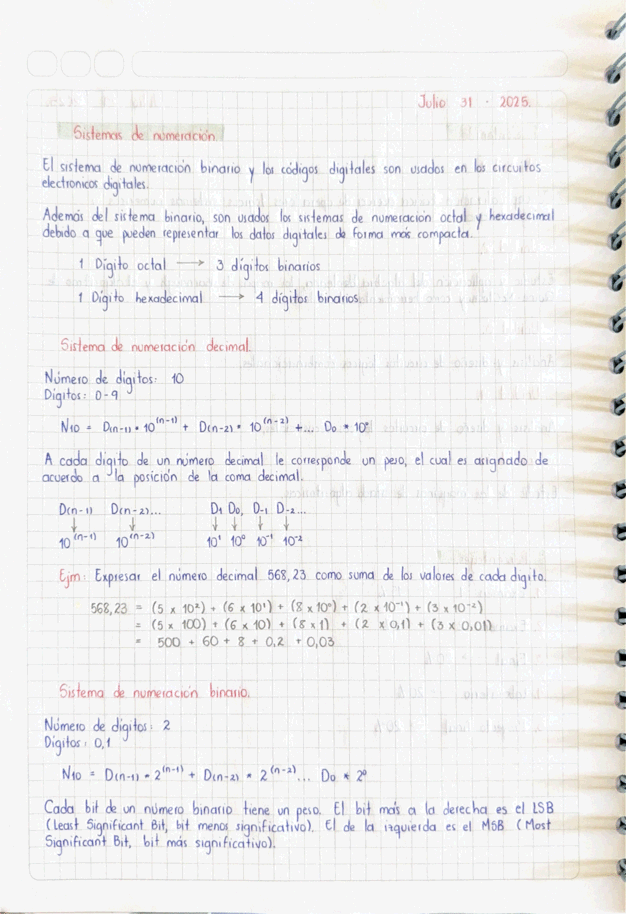 Julio 31 - 2025.
Sistemas de numeración
El sistema de numeración binario y los códigos digitales son usados en los circuitos
electronicos digitales.
Además del sistema binario, son usados los sistemas de numeración octal y hexadecimal
debido a que pueden representar los datos digitales de forma más compacta.
1 Dígito octal → 3 dígitos binarios
1 Dígito hexadecimal → 4 dígitos binarios
Sistema de numeración decimal.
Número de dígitos: 10
Dígitos: 0-9
N10 = D(n-1) * 10^(n-1) + D(n-2) * 10^(n-2) +... D0 * 10⁰
A cada dígito de un número decimal le corresponde un peso, el cual es asignado de
acuerdo a la posición de la coma decimal.
D(n-1) D(n-2)... D1 D0, D-1 D-2...
↓ ↓ ↓ ↓ ↓ ↓
10^(n-1) 10^(n-2) 10¹ 10⁰ 10⁻¹ 10⁻²
Ejm: Expresar el número decimal 568,23 como suma de los valores de cada dígito.
568,23 = (5 x 10²) + (6 x 10¹) + (8 x 10⁰) + (2 x 10⁻¹) + (3 x 10⁻²)
= (5 x 100) + (6 x 10) + (8 x 1) + (2 x 0,1) + (3 x 0,01)
= 500 + 60 + 8 + 0,2 + 0,03
Sistema de numeración binario.
Número de dígitos: 2
Dígitos: 0,1
N10 = D(n-1) * 2^(n-1) + D(n-2) * 2^(n-2)... D0 * 2⁰
Cada bit de un número binario tiene un peso. El bit más a la derecha es el LSB
(Least Significant Bit, bit menos significativo). El de la izquierda es el MSB (Most
Significant Bit, bit más significativo).